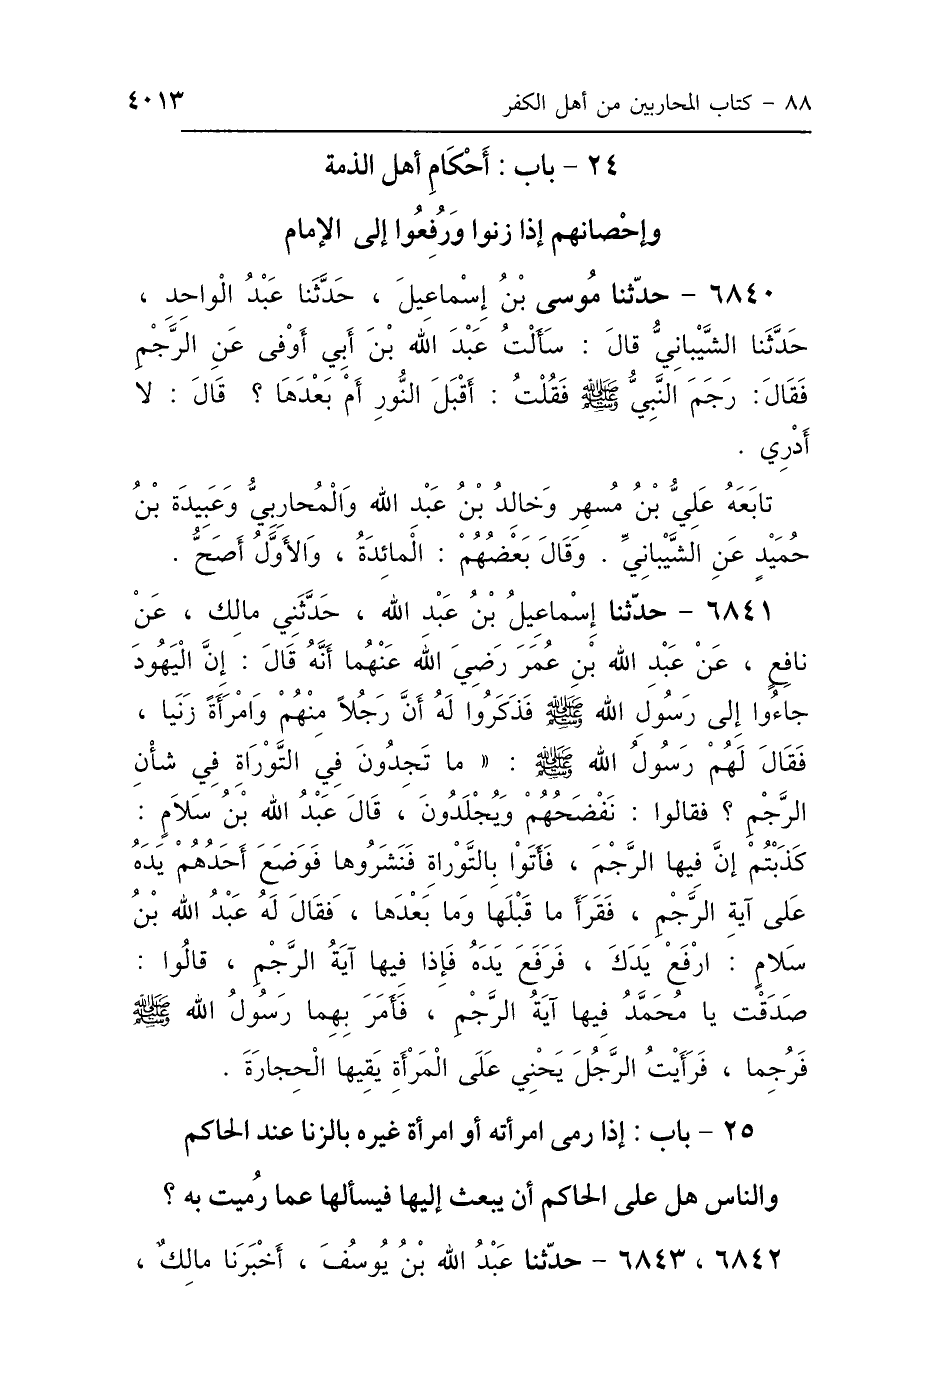 ٨٨ - كتاب المحاربين من أهل الكفر ٤٠١٣
٢٤ - باب : أَحْكَامِ أهل الذمة
وإحْصانهم إذا زنوا وَرُفِعُوا إلى الإمام
٦٨٤٠ - حدّثنا مُوسى بْنُ إِسْماعِيلَ ، حَدَّثَنا عَبْدُ الْواحِدِ ،
حَدَّثَنا الشَّيْبانِيُّ قالَ : سَأَلْتُ عَبْدَ الله بْنَ أَبِي أَوْفى عَنِ الرَّجْمِ
فَقَالَ: رَجَمَ النَّبِيُّ ﷺ فَقُلْتُ : أَقْبَلَ النُّورِ أَمْ بَعْدَهَا ؟ قَالَ : لا
أَدْرِي .
تابَعَهُ عَلِيُّ بْنُ مُسهِر وَخالِدُ بْنُ عَبْدِ الله وَالْمُحارِبِيُّ وَعَبِيدَة بْنُ
حُمَيْدٍ عَنِ الشَّيْبانِيِّ . وَقَالَ بَعْضُهُمْ : الْمائِدَةُ ، وَالأَوَّلُ أَصَحُّ .
٦٨٤١ - حدّثنا إِسْماعِيلُ بْنُ عَبْدِ الله ، حَدَّثَنِي مالك ، عَنْ
نافِعٍ ، عَنْ عَبْدِ الله بْنِ عُمَرَ رَضِيَ الله عَنْهُما أَنَّهُ قَالَ : إِنَّ الْيَهُودَ
جاءُوا إِلى رَسُولِ الله ﷺ فَذَكَرُوا لَهُ أَنَّ رَجُلاً مِنْهُمْ وَامْرأَةً زَنَيا ،
فَقَالَ لَهُمْ رَسُولُ الله ﷺ : « ما تَجِدُونَ فِي التَّوْرَاةِ فِي شأْنِ
الرَّجْمِ ؟ فقالوا : نَفْضَحُهُمْ وَيُجْلَدُونَ ، قَالَ عَبْدُ الله بْنُ سَلَامٍ :
كَذَبْتُمْ إِنَّ فِيها الرَّجْمَ ، فَأَتَوْا بِالتَّوْراةِ فَنَشَرُوها فَوَضَعَ أَحَدُهُمْ يَدَهُ
عَلى آيَةِ الرَّجْمِ ، فَقَرَأَ ما قَبْلَها وَما بَعْدَها ، فَقالَ لَهُ عَبْدُ الله بْنُ
سَلامٍ : ارْفَعْ يَدَكَ ، فَرَفَعَ يَدَهُ فَإِذا فِيها آيَةُ الرَّجْمِ ، قالُوا :
صَدَقْت يا مُحَمَّدُ فِيها آيَةُ الرَّجْمِ ، فَأَمَرَ بِهِما رَسُولُ الله ﷺ
فَرُجِما ، فَرَأَيْتُ الرَّجُلَ يَحْنِي عَلَى الْمَرْأَةِ يَقِيها الْحِجارَةَ .
٢٥ - باب : إذا رمى امرأته أو امرأة غيره بالزنا عند الحاكم
والناس هل على الحاكم أن يبعث إليها فيسألها عما رُميت به ؟
٦٨٤٢ ، ٦٨٤٣ - حدّثنا عَبْدُ الله بْنُ يُوسُفَ ، أَخْبَرَنَا مالِكٌ ،